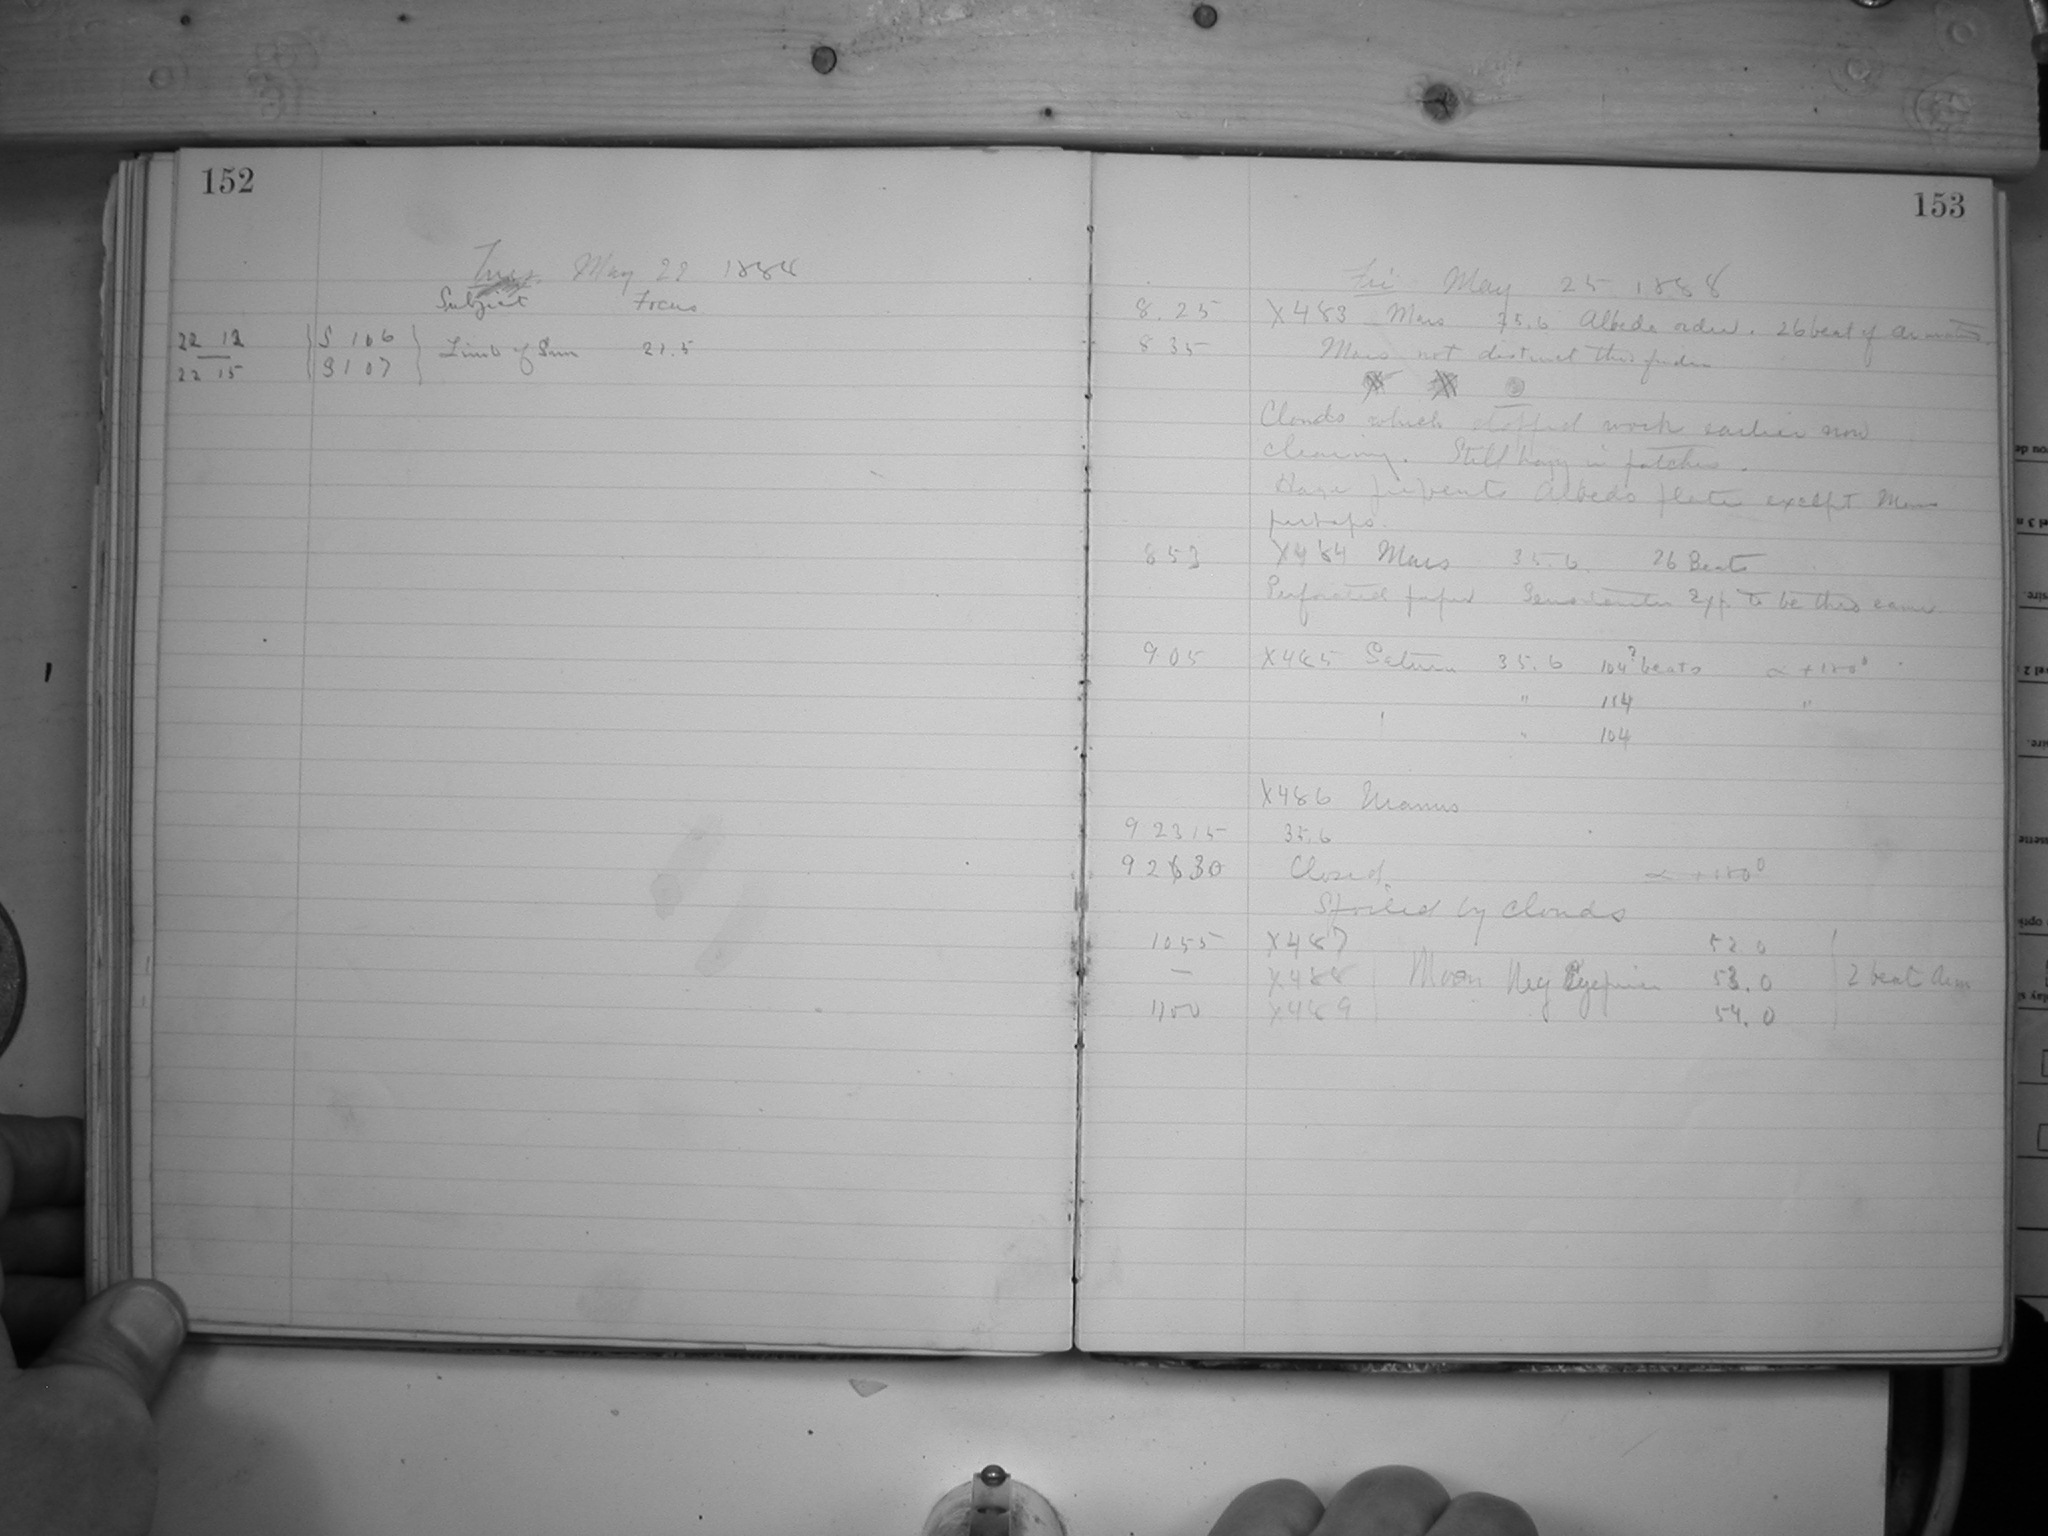 152
Tues. May 22 1888
Subject Focus
22 12 S 106
Limb of Sun 21.5
22 15 S 107
153
Fri May 25 1888
8.25 X483 Mars 35.6 Albedo order. 26 beat of
8 35 Mars not distinct thro finder
Clouds which stopped work earlier now
clearing. Still hazy in patches.
Haze prevents Albedo plate except Mars
perhaps.
8 53 X484 Mars 35.6. 26 Beats
Perforated paper Exp. to be thro same
9 05 X485 Saturn 35.6 104? beats α +180°
" 104 "
" 104
X486 Uranus
9 23 15 35.6
9 26 30 Closed. α +180°
Spoiled by clouds
10 55 X487 52.0
— X488 Moon Neg Eyepiece 53.0 2 beat
11 00 X489 54.0